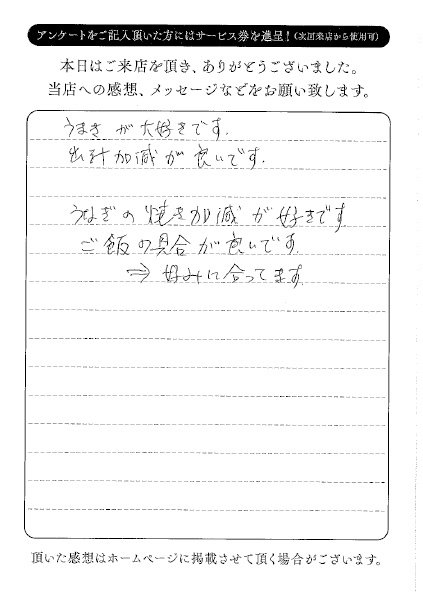 アンケートをご記入頂いた方にはサービス券を進呈！(次回来店から使用可)
本日はご来店を頂き、ありがとうございました。
当店への感想、メッセージなどをお願い致します。
うまきが大好きです.
出汁加減が良いです.
うなぎの焼き加減が好きです
ご飯の具合が良いです.
⇒ 好みに合ってます.
頂いた感想はホームページに掲載させて頂く場合がございます。